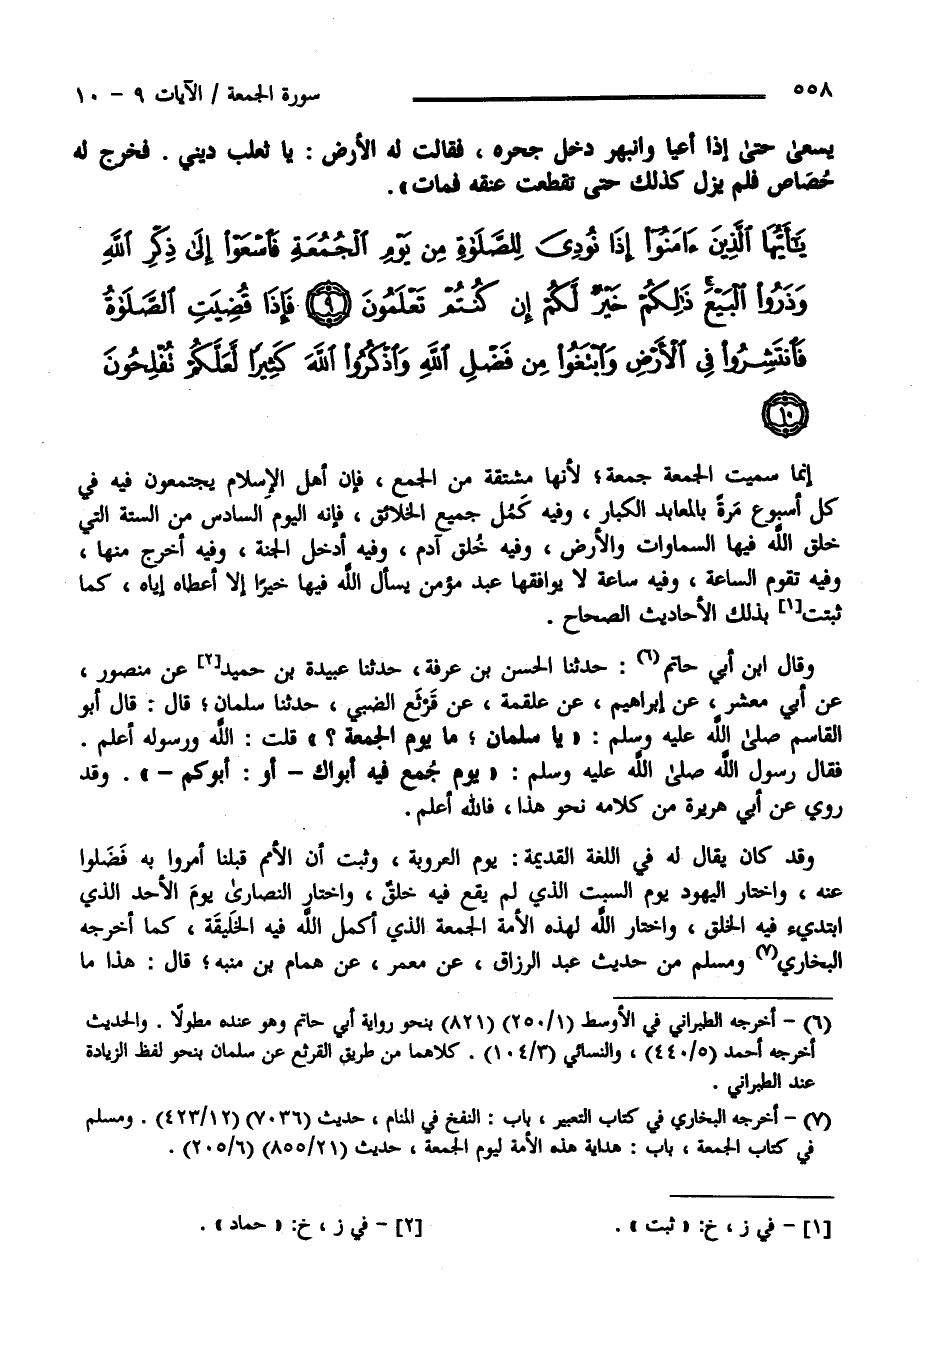 ٥٥٨ سورة الجمعة / الآيات ٩ - ١٠
يسعىٰ حتىٰ إذا أعيا وانبهر دخل جحره ، فقالت له الأرض : يا ثعلب ديني . فخرج له
حُصَاص فلم يزل كذلك حتى تقطعت عنقه فمات » .
يَٰٓأَيُّهَا ٱلَّذِينَ ءَامَنُوٓاْ إِذَا نُودِىَ لِلصَّلَوٰةِ مِن يَوْمِ ٱلْجُمُعَةِ فَٱسْعَوْاْ إِلَىٰ ذِكْرِ ٱللَّهِ
وَذَرُواْ ٱلْبَيْعَۚ ذَٰلِكُمْ خَيْرٌ لَّكُمْ إِن كُنتُمْ تَعْلَمُونَ ٩ فَإِذَا قُضِيَتِ ٱلصَّلَوٰةُ
فَٱنتَشِرُواْ فِى ٱلْأَرْضِ وَٱبْتَغُواْ مِن فَضْلِ ٱللَّهِ وَٱذْكُرُواْ ٱللَّهَ كَثِيرًا لَّعَلَّكُمْ تُفْلِحُونَ
١٠
إنما سميت الجمعة جمعة ؛ لأنها مشتقة من الجمع ، فإن أهل الإسلام يجتمعون فيه في
كل أسبوع مَرةً بالمعابد الكبار ، وفيه كَمُل جميع الخلائق ، فإنه اليوم السادس من الستة التي
خلق اللَّه فيها السماوات والأرض ، وفيه خُلق آدم ، وفيه أدخل الجنة ، وفيه أخرج منها ،
وفيه تقوم الساعة ، وفيه ساعة لا يوافقها عبد مؤمن يسأل اللَّه فيها خيرًا إلا أعطاه إياه ، كما
ثبتت[١] بذلك الأحاديث الصحاح .
وقال ابن أبي حاتم(٦) : حدثنا الحسن بن عرفة ، حدثنا عبيدة بن حميد[٢] عن منصور ،
عن أبي معشر ، عن إبراهيم ، عن علقمة ، عن قَرْثَع الضبي ، حدثنا سلمان ؛ قال : قال أبو
القاسم صلىٰ اللَّه عليه وسلم : « يا سلمان ؛ ما يوم الجمعة ؟ » قلت : اللَّه ورسوله أعلم .
فقال رسول اللَّه صلىٰ اللَّه عليه وسلم : « يوم جُمع فيه أبواك – أو : أبوكم – » . وقد
روي عن أبي هريرة من كلامه نحو هذا ، فالله أعلم .
وقد كان يقال له في اللغة القديمة : يوم العروبة ، وثبت أن الأمم قبلنا أمروا به فَضَلوا
عنه ، واختار اليهود يوم السبت الذي لم يقع فيه خلقٌ ، واختار النصارىٰ يومَ الأحد الذي
ابتديء فيه الخلق ، واختار اللَّه لهذه الأمة الجمعة الذي أكمل اللَّه فيه الخَلِيقَة ، كما أخرجه
البخاري(٧) ومسلم من حديث عبد الرزاق ، عن معمر ، عن همام بن منبه ؛ قال : هذا ما
(٦) – أخرجه الطبراني في الأوسط (٢٥٠/١) (٨٢١) بنحو رواية أبي حاتم وهو عنده مطولًا . والحديث
أخرجه أحمد (٤٤٠/٥) ، والنسائي (١٠٤/٣) . كلاهما من طريق القرثع عن سلمان بنحو لفظ الزيادة
عند الطبراني .
(٧) – أخرجه البخاري في كتاب التعبير ، باب : النفخ في المنام ، حديث (٧٠٣٦) (٤٢٣/١٢) . ومسلم
في كتاب الجمعة ، باب : هداية هذه الأمة ليوم الجمعة ، حديث (٨٥٥/٢١) (٢٠٥/٦) .
[١] – في ز ، خ: « ثبت » . [٢] – في ز ، خ: « حماد » .